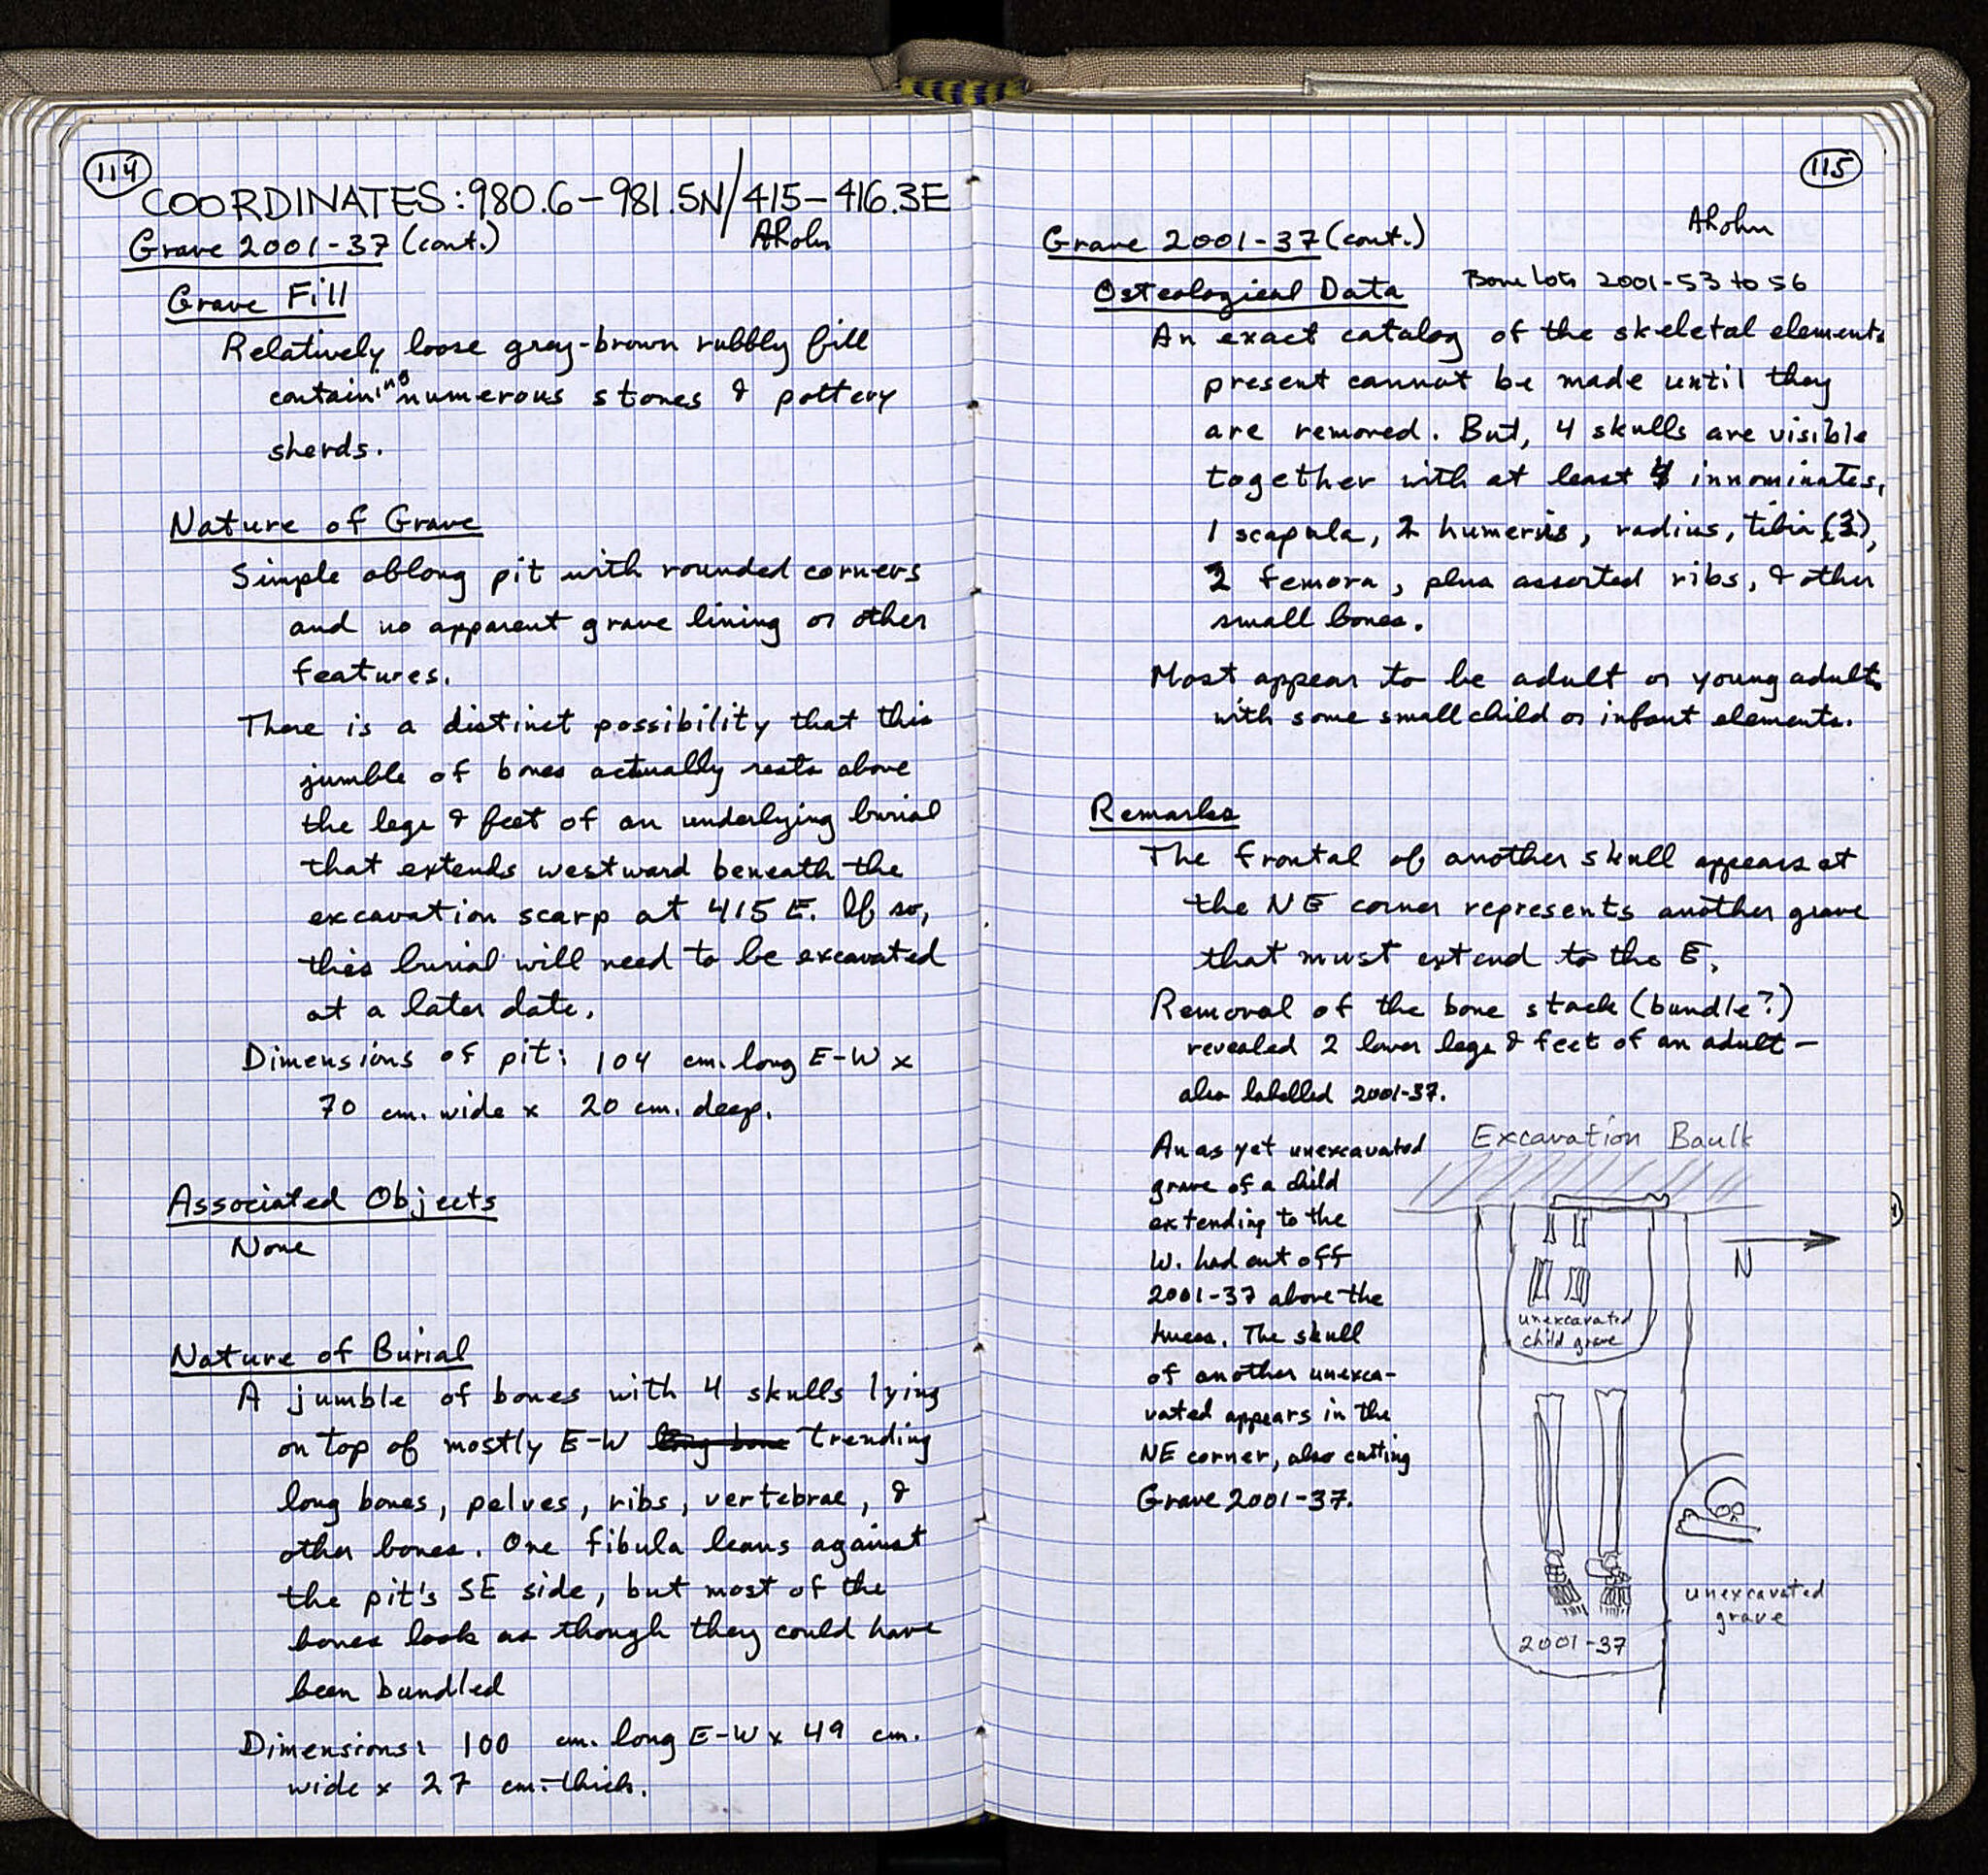 114
COORDINATES: 980.6-981.5N/415-416.3E
Grave 2001-37 (cont.)
ARohn
Grave Fill
Relatively loose gray-brown rubbly fill
containing numerous stones & pottery
sherds.
Nature of Grave
Simple oblong pit with rounded corners
and no apparent grave lining or other
features.
There is a distinct possibility that this
jumble of bones actually rests above
the legs & feet of an underlying burial
that extends westward beneath the
excavation scarp at 415 E. If so,
this burial will need to be excavated
at a later date.
Dimensions of pit: 104 cm. long E-W x
70 cm. wide x 20 cm. deep.
Associated Objects
None
Nature of Burial
A jumble of bones with 4 skulls lying
on top of mostly E-W long bone trending
long bones, pelves, ribs, vertebrae, &
other bones. One fibula leans against
the pit's SE side, but most of the
bones look as though they could have
been bundled
Dimensions: 100 cm. long E-W x 49 cm.
wide x 27 cm. thick.
115
ARohn
Grave 2001-37 (cont.)
Osteological Data Bone Lots 2001-53 to 56
An exact catalog of the skeletal elements
present cannot be made until they
are removed. But, 4 skulls are visible
together with at least innominates,
1 scapula, 2 humerus, radius, tibia (3),
2 femora, plus assorted ribs, & other
small bones.
Most appear to be adult or young adults
with some small child or infant elements.
Remarks
The frontal of another skull appears at
the NE corner represents another grave
that must extend to the E.
Removal of the bone stack (bundle?)
revealed 2 lower legs & feet of an adult -
also labelled 2001-37.
An as yet unexcavated
grave of a child
extending to the
W. had cut off
2001-37 above the
knees. The skull
of another unexca-
vated appears in the
NE corner, also cutting
Grave 2001-37.
Excavation Baulk
N
unexcavated
child grave
unexcavated
grave
2001-37